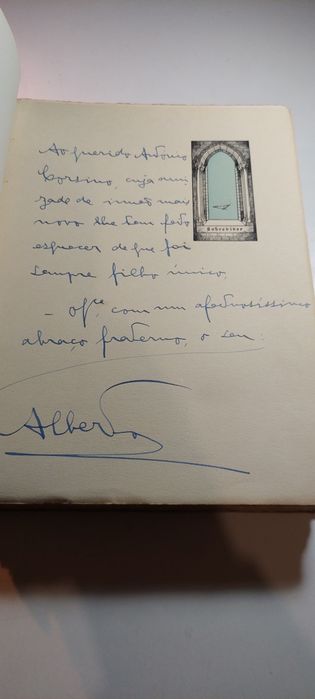 Ao querido António
Corsino, cuja ami-
zade de irmão mais
novo lhe tem feito
esquecer de que foi
sempre filho único,
— Of.ce, com um afectuosíssimo
abraço fraterno, o seu:
Alberto
Sobreviver